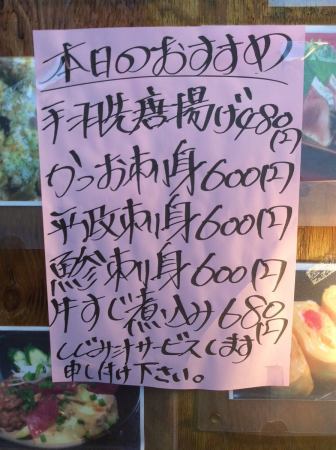 本日のおすすめ
手羽先唐揚げ480円
かつお刺身600円
平政刺身600円
鯵刺身600円
牛すじ煮込み680円
しじみ汁サービスします
申し付け下さい。